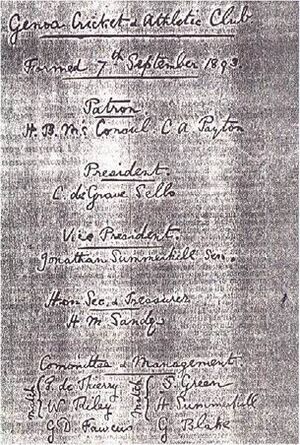 Genoa Cricket & Athletic Club
Formed 7th September 1893.
Patron
H. B. M's Consul C A Payton
President.
C. de Grave Sells
Vice President.
Jonathan Summerhill Sen.
Hon Sec. & Treasurer
H. M. Sandys
Committee & Management.
P. de Thierry S. Green
W. Riley H. Summerhill
G D Fawcus G Blake